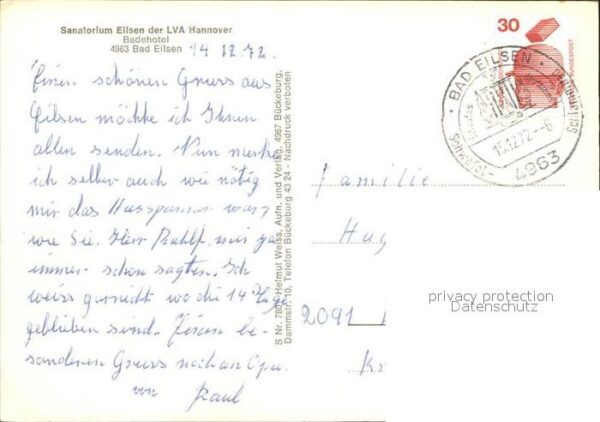 Sanatorium Eilsen der LVA Hannover
Badehotel
4963 Bad Eilsen
14.12.72.
Einen schönen Gruss aus
Eilsen möchte ich Ihnen
allen senden. Nun merke
ich selber auch wie nötig
mir das Ausspannen war,
wie Sie, Herr mir ja
immer schon sagten. Ich
weiss garnicht wo die 14 Tage
geblieben sind. Einen be-
sonderen Gruss noch an Opa.
von Paul
S Nr. 780 Helmut Weiss, Aufn. und Verlag, 4967 Bückeburg,
Dammstr. 10, Telefon Bückeburg 43 24 - Nachdruck verboten
30
DEUTSCHE BUNDESPOST
BAD EILSEN
15.12.72.-6
4963
Familie
Hug
2091
Kr
privacy protection
Datenschutz